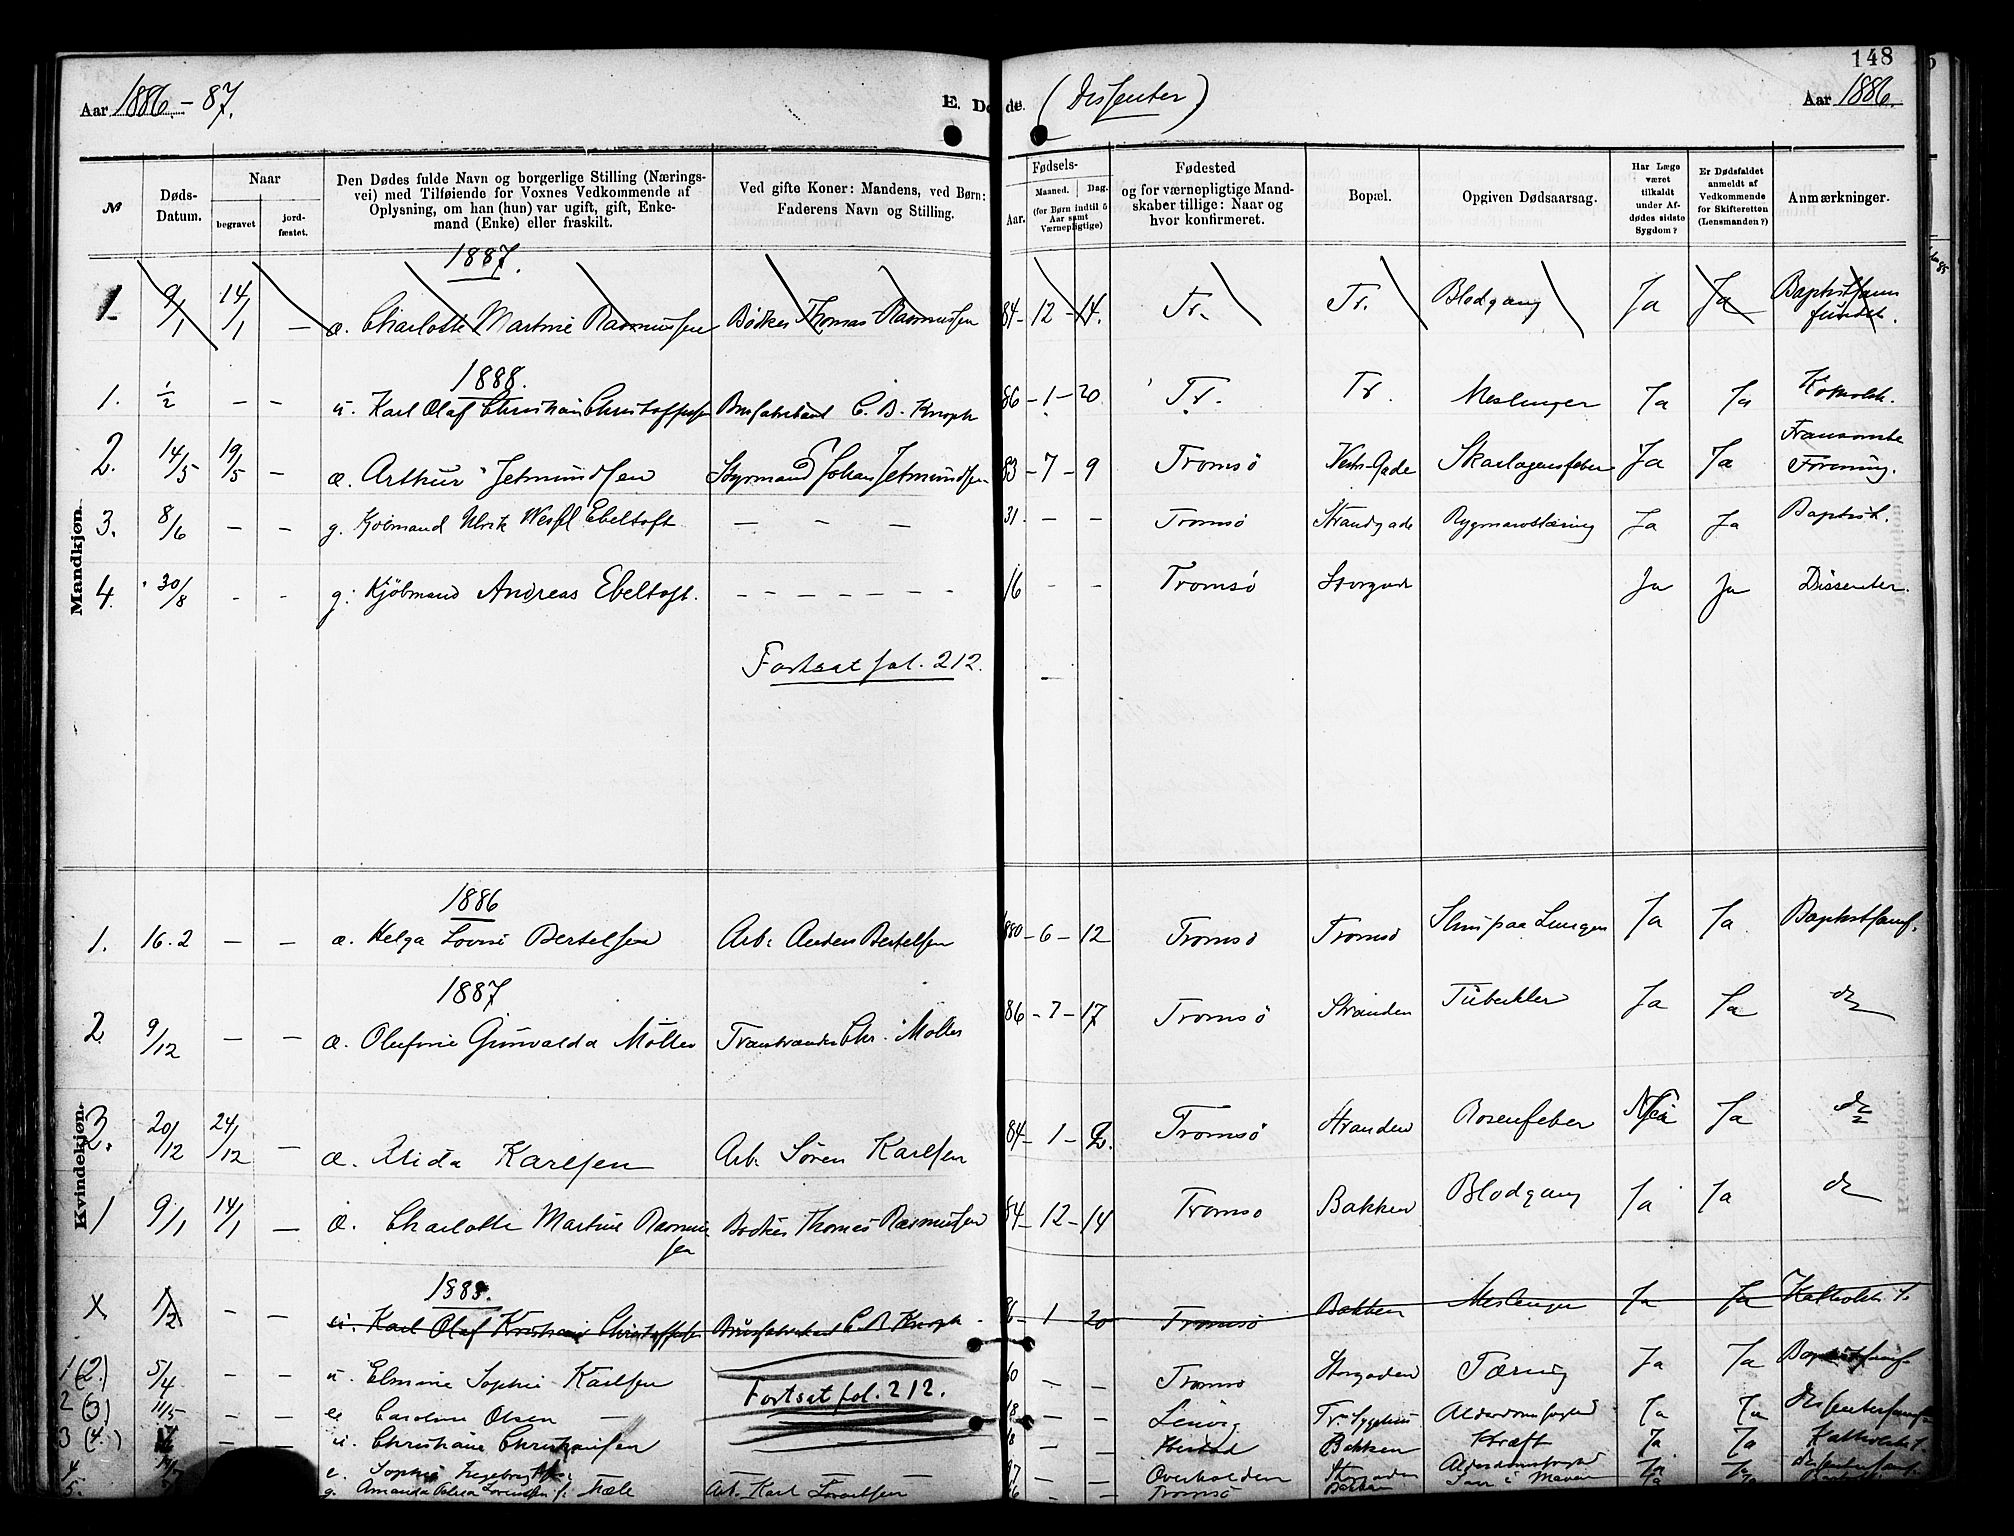 148
Aar 1886 - 87.
E. Døde. (Dissenter)
Aar 1886.
№
Døds-Datum.
Naar
begravet
jord-fæstet.
Den Dødes fulde Navn og borgerlige Stilling (Nærings-
vei) med Tilføiende for Voxnes Vedkommende af
Oplysning, om han (hun) var ugift, gift, Enke-
mand (Enke) eller fraskilt.
Ved gifte Koner: Mandens, ved Børn:
Faderens Navn og Stilling.
Fødsels-
Aar.
Maaned.
Dag.
(for Børn indtil 5 Aar samt Værnepligtige)
Fødested
og for værnepligtige Mand-
skaber tillige: Naar og
hvor konfirmeret.
Bopæl.
Opgiven Dødsaarsag.
Har Læge været tilkaldt under Afdødes sidste Sygdom?
Er Dødsfaldet anmeldt af Vedkommende for Skifteretten (Lensmanden?)
Anmærkninger.
Mandkjøn.
1887.
1 9/1 14/1 — æ. Charlotte Martine Rasmussen Bødker Thomas Rasmussen 84 - 12 - 14. Tr. Tr. Blodgang Ja Ja Baptistsamfundet.
1888.
1. 1/2 — — u. Karl Olaf Christian Christoffersen Brusfabrikant C. B. Knoph 86 - 1 - 20 Tr. Tr. Meslinger Ja Ja Katholik.
2. 14/5 19/5 — æ. Arthur Jetmundsen Styrmand Johan Jetmundsen 83 - 7 - 9 Tromsö Vestr. Gade Skarlagensfeber Ja Ja Forening.
3. 8/6 — — g. Kjøbmand Ulrik Ebeltoft — — — 31. — — Tromsö Strandgade Rygmarvstæring Ja Ja Baptist.
4. 30/8 - - g: Kjöbmand Andreas Ebeltoft. — — — — — — 16 - - Tromsö Storgade Ja Ja Dissenter.
Fortsat fol. 212.
Kvindekjøn.
1886
1. 16.2 — — æ. Helga Lovise Bertelsen Arb. Anders Bertelsen 1880 - 6 - 12 Tromsö Tromsö Slim paa Lungen Ja Ja Baptistsamf.
1887
2 9/12 — — æ. Olufine Gunvalda Möller Tranbrænder Chr. Möller 86 - 7 - 17 Tromsö Stranden Tuberkler Ja Ja do
3. 20/12 24/12 — æ. Alida Karlsen Arb. Sören Karlsen 84 - 1 - 2. Tromsö Stranden Rosenfeber Nei Ja do
1 9/1 14/1 — æ. Charlotte Martine Rasmussen Bødker Thomas Rasmussen 84 - 12 - 14 Tromsö Bakken Blodgang Ja Ja do
1888.
X 1/2 — — u. Karl Olaf Kristian Christoffersen Brusfabrikant C. B. Knoph 86 - 1 20 Tromsö Bakken Meslinger Ja Ja Katholsk S.
1 (2.) 5/4 — — u. Elmine Sophie Karlsen 60 — — Tromsö Storgaden Tæring Ja Ja Baptistsamf.
Fortsat fol. 212.
2 (3) 11/5 — — e. Caroline Olsen — 18 — — Lenvig Tr. Sygehus Alderdomssvaghed Ja Ja Dissentersamf.
3 (4.) — — u. Christiane Christiansen — — Bakken Kræft Ja Ja Katholsk S.
4. e. Sophie Ingeborg — — — — Overhalden Storgaden Alderdomssvaghed Ja Ja Dissentersamf.
5. g. Amanda Lorentsen f. Mæle Arb. Karl Lorentsen — — Tromsö Bakken Saar i Maven Ja Ja